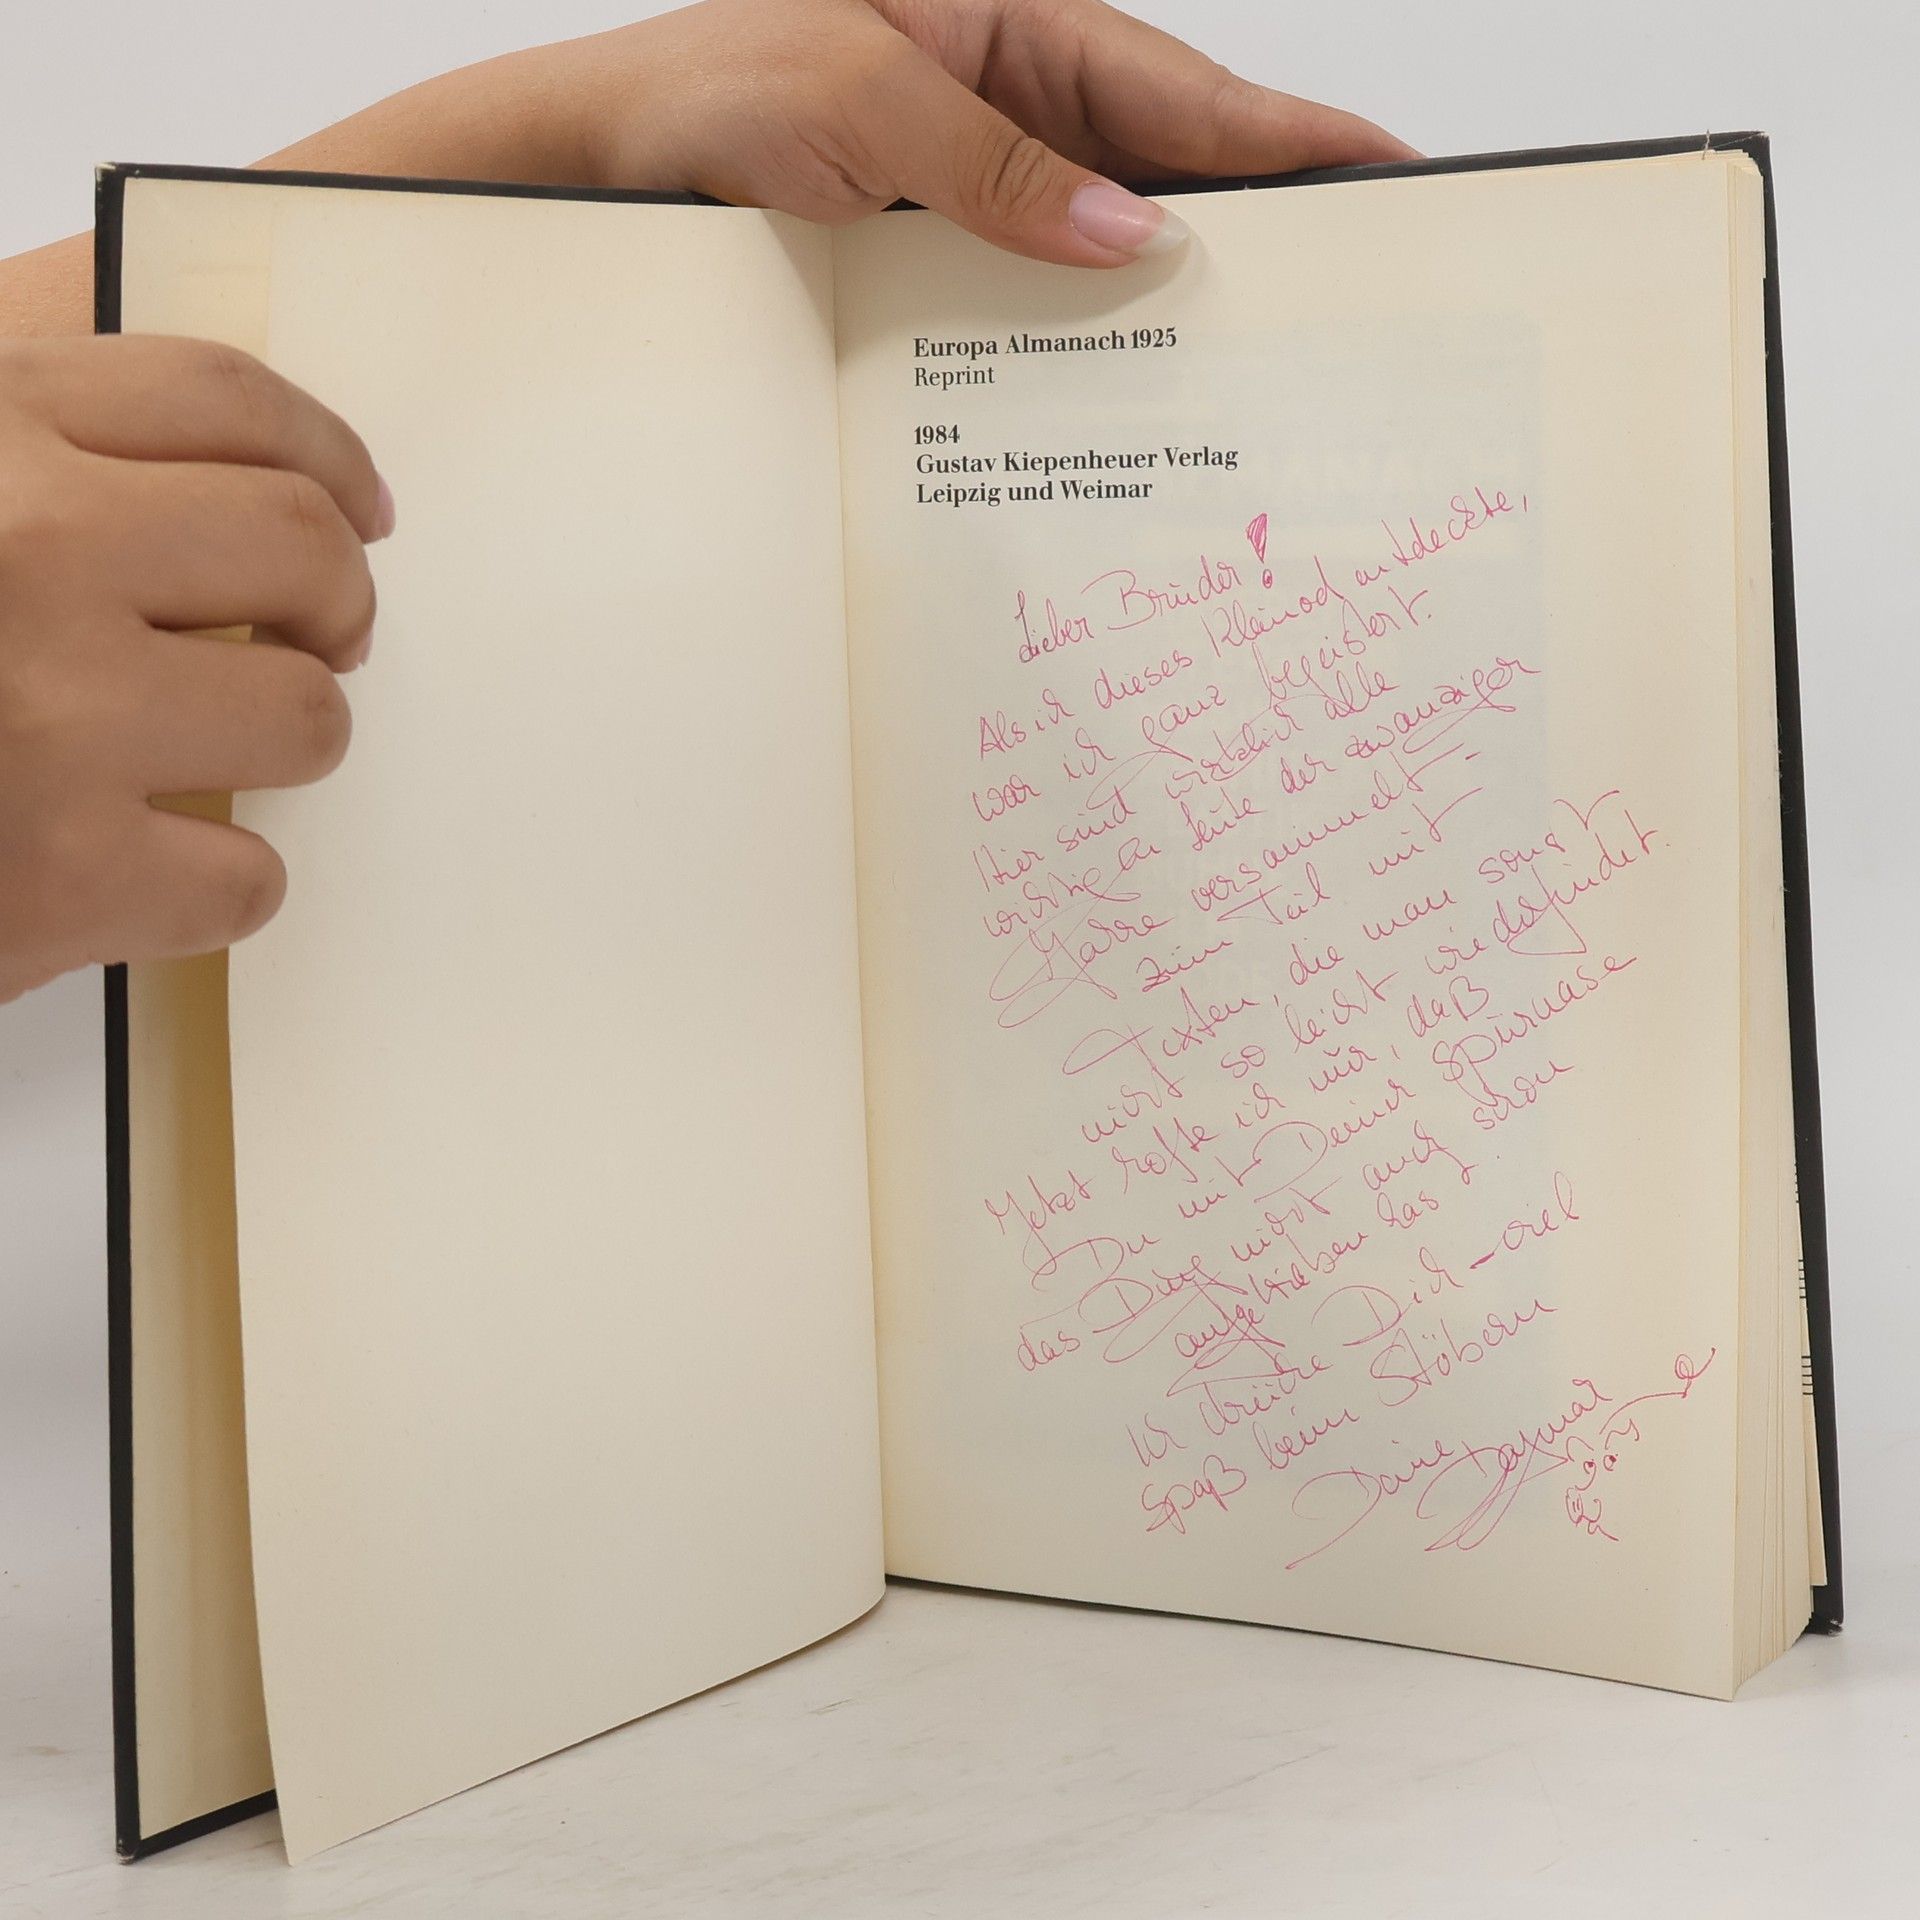 Europa Almanach 1925
Reprint
1984
Gustav Kiepenheuer Verlag
Leipzig und Weimar
Lieber Bruder!
Als ich dieses Kleinod entdeckte,
war ich ganz begeistert.
Hier sind wirklich alle
wichtigen Leute der zwanziger
Jahre versammelt –
zum Teil mit
Texten, die man sonst
nicht so leicht wiederfindet.
Jetzt hoffe ich nur, daß
Du mit Deiner Spürnase
das Ding nicht auch schon
aufgetrieben hast.
Ich drücke Dich – viel
Spaß beim Stöbern
Deine Dagmar